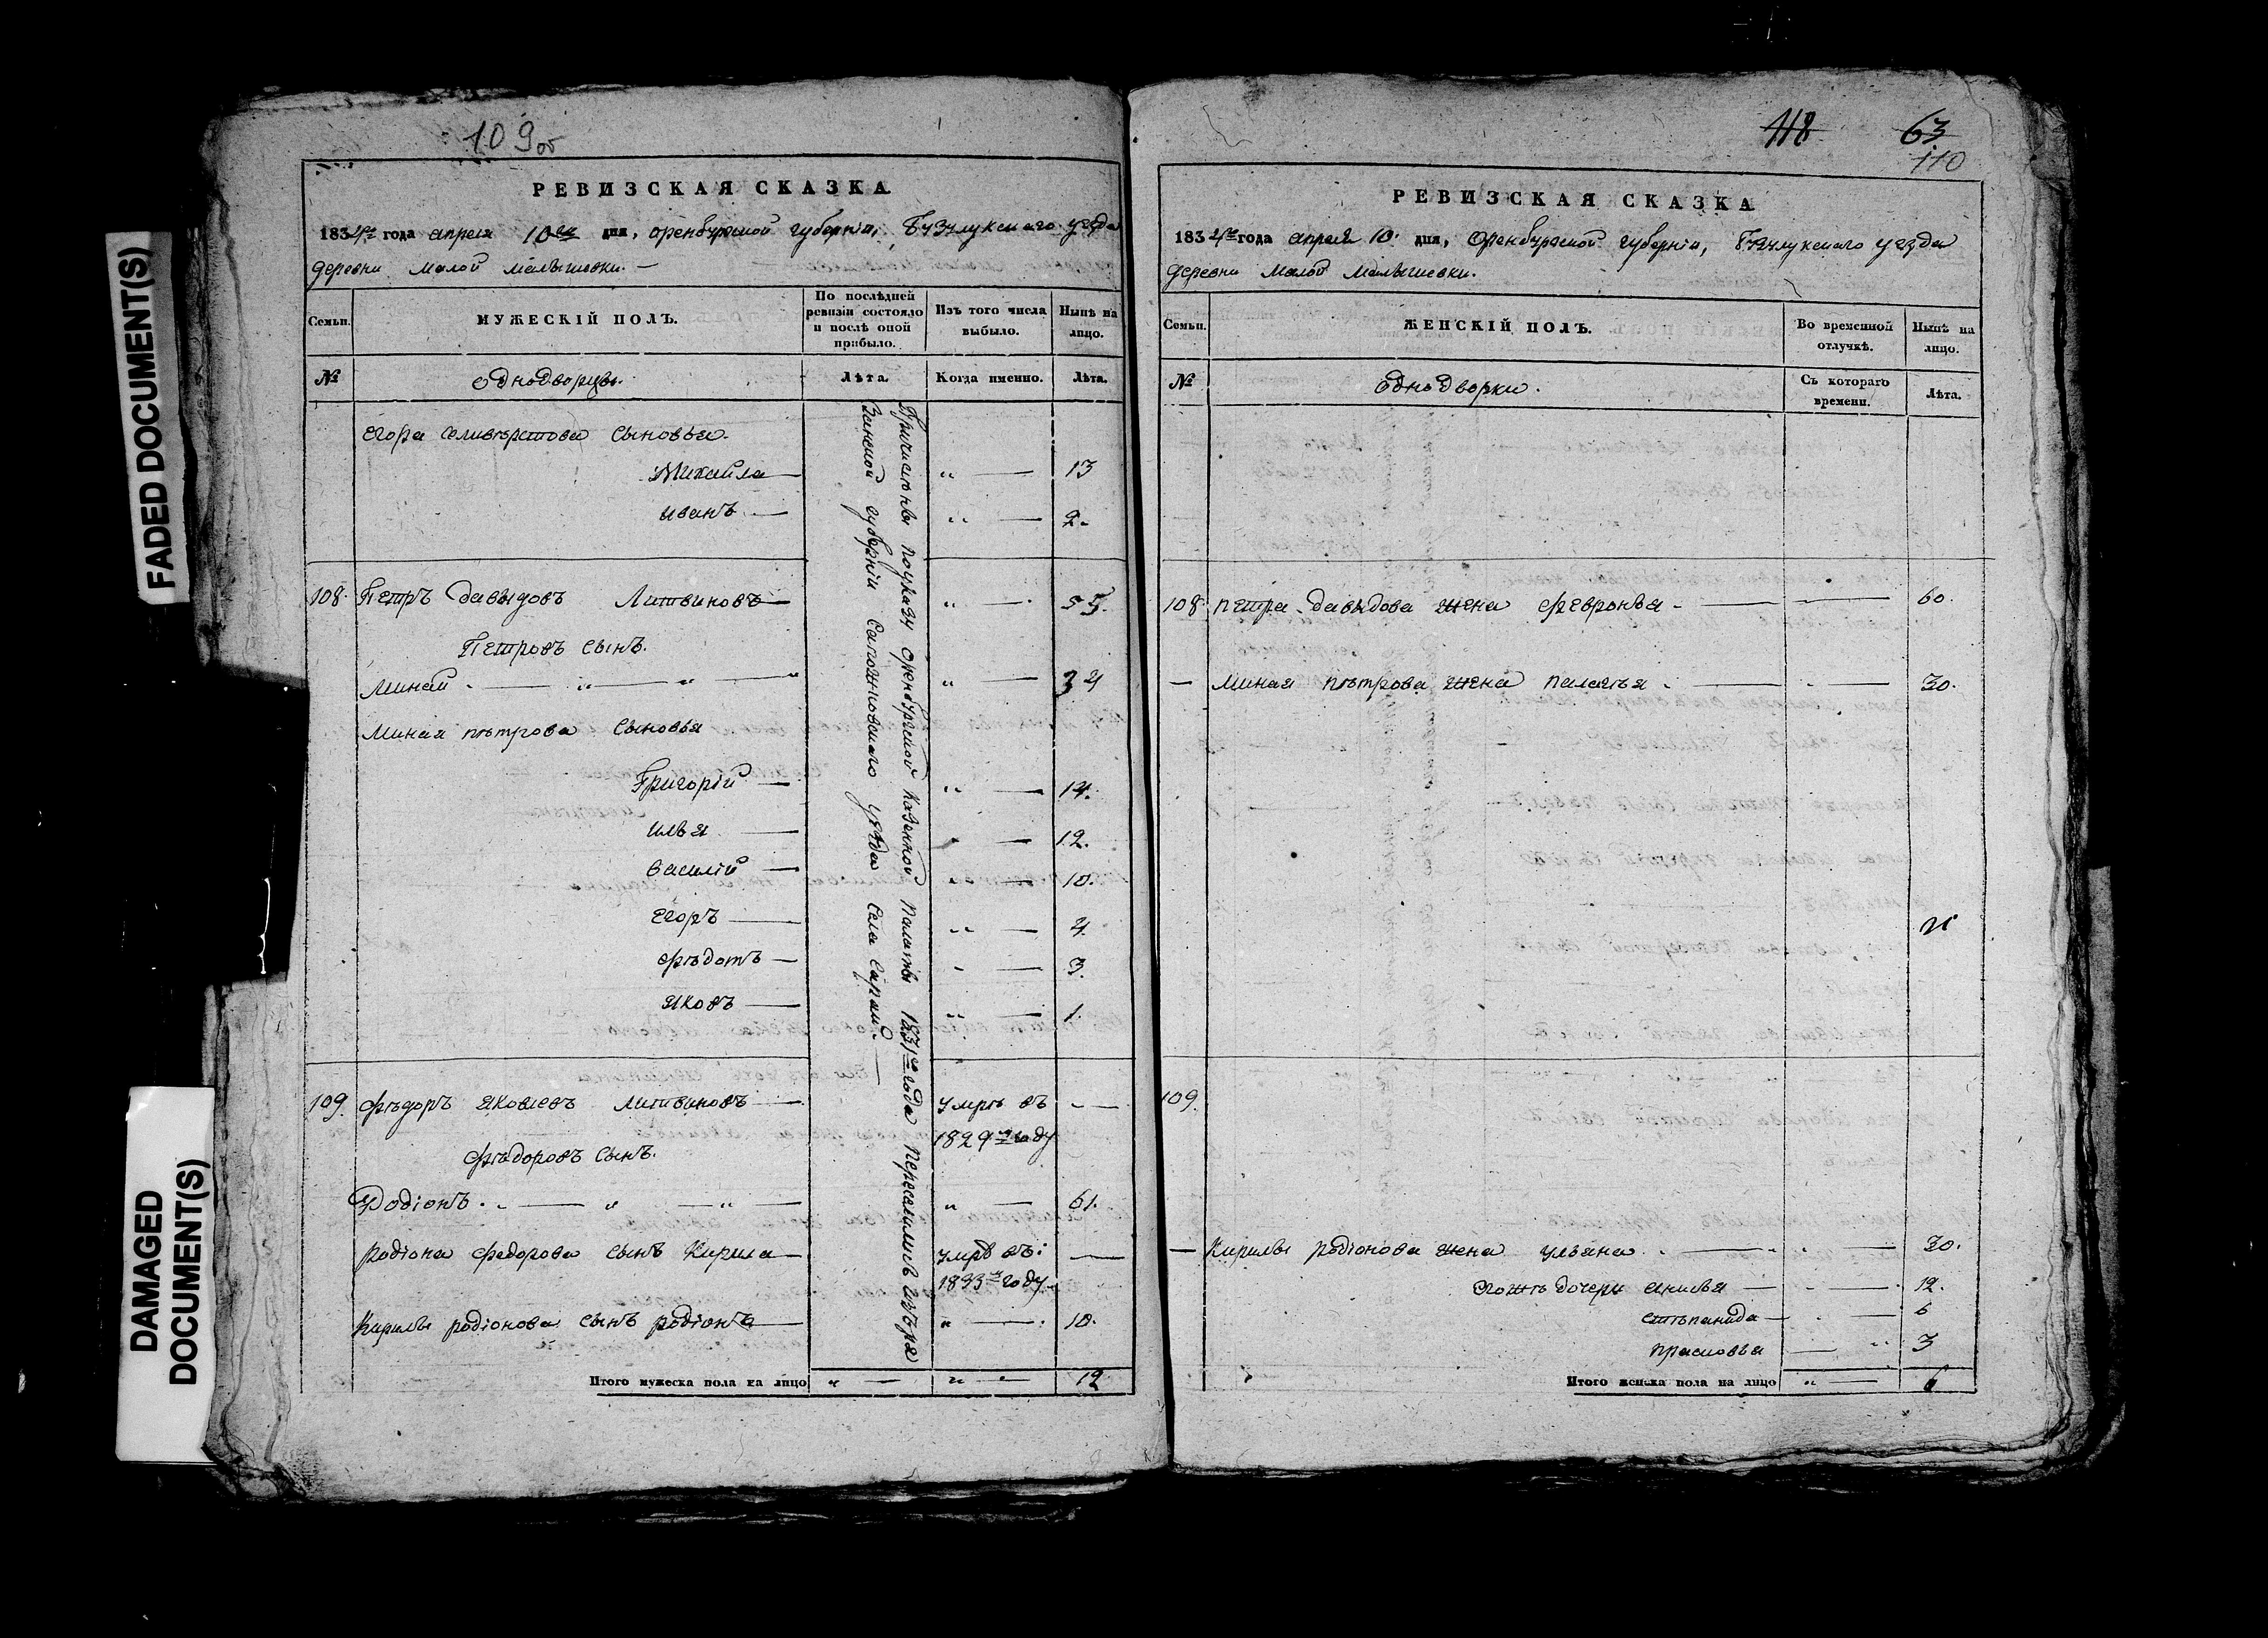 FADED DOCUMENT(S)
DAMAGED
DOCUMENT(S)
109об
РЕВИЗСКАЯ СКАЗКА
1834го года апреля 10го дня, оренбургской губернии, Бузулукскаго уезда
деревни малой малышевки. —
Семьи.
МУЖЕСКІЙ ПОЛЪ.
По послѣдней
ревизіи состояло
и послѣ оной
прибыло.
Изъ того числа
выбыло.
Нынѣ на
лицо.
№
однодворцы.
Лѣта.
Когда именно.
Лѣта.
Причислены поуказу оренбургской казенной палаты 1831го года переселились изъ ря
занской губерніи Сапожковскаго уѣзда Села
егора селиверстова сыновья.
Михайла — „ — 13
иванъ — „ — 2.
108. Петръ давыдовъ Литвиновъ — „ — 55.
Петровъ сынъ.
минай „ — „ — „ — „ — 34
миная пѣтрова сыновья
Григорій — „ — 14.
илья — „ — 12.
василій — „ — 10.
егоръ — „ — 4.
фѣдотъ — „ — 3.
яковъ — „ — 1.
109. фѣдоръ яковлевъ литвиновъ — умрѣ въ — —
1829м году
фѣдоровъ сынъ.
Родіонъ „ — „ — „ — „ — 61.
родіона федорова сынъ Кирила — умрѣ въ —
1833м году
кирилы родіонова сынъ родіонъ — „ — 10.
Итого мужеска пола на лицо „ — „ — 12
118
63
110
РЕВИЗСКАЯ СКАЗКА
1834го года апреля 10. дня, Оренбургской губерніи, Бузулукскаго уезда
деревни малой малышевки.
Семьи.
ЖЕНСКІЙ ПОЛЪ.
Во временной
отлучкѣ.
Нынѣ на
лицо.
№
Однодворки.
Съ котораго
времени.
Лѣта.
108 петра давыдова жена февронья — — 60.
— миная пѣтрова жена палагья — — 30.
109.
— кирилы родіонова жена ульяна — — 30.
егожъ дочери — — 12.
стѣпанида — — 6
прасковья — „ 3
Итого женска пола на лицо „ — 6